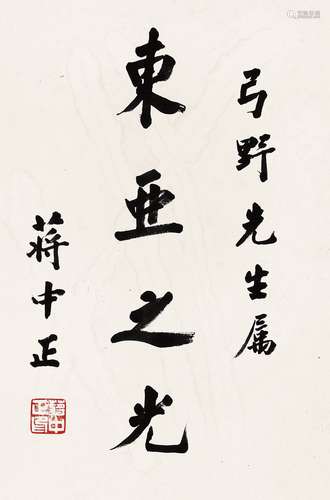 弓野先生属
東亜之光
蔣中正